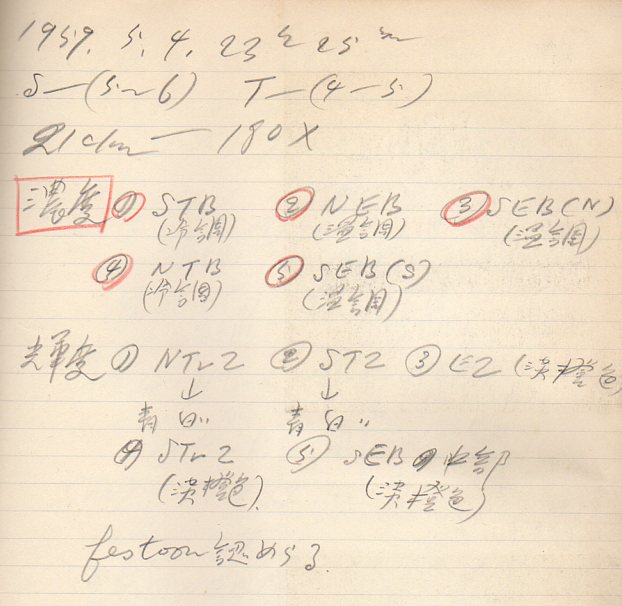 1959. 5. 4. 23h 25m
S—(5~6) T—(4—5)
21cm — 180X
濃度 ① STB ② NEB ③ SEB(N)
(冷調) (温調) (温調)
④ NTB ⑤ SEB(S)
(冷調) (温調)
光輝度 ① NTrZ ② STZ ③ EZ (淡橙色)
↓ ↓
青白い 青白い
④ STrZ ⑤ SEBの中部
(淡橙色) (淡橙色)
festoon認めらる